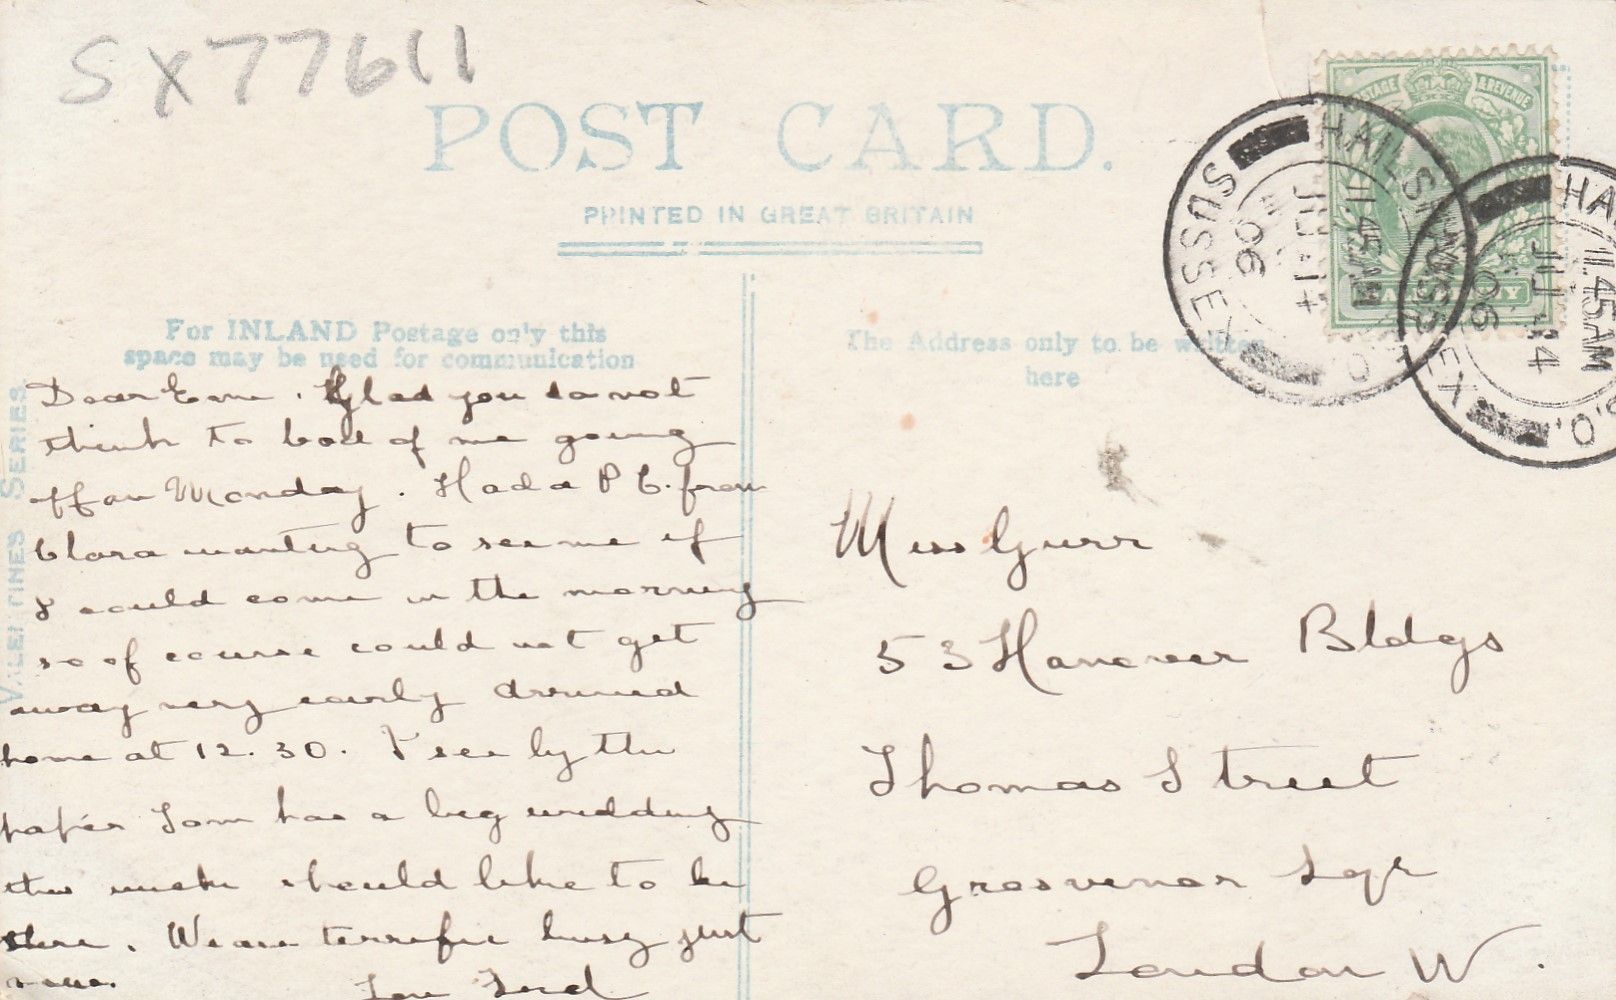 SX77611
POST CARD.
PRINTED IN GREAT BRITAIN
For INLAND Postage only this
space may be used for communication
The Address only to be written
here
VALENTINES SERIES
POSTAGE & REVENUE
HAILSHAM S.O. SUSSEX
11.45AM
06
HA
11.45AM
06
S.O.
EX
Dear Em. Glad you do not
think to bad of me going
off on Monday. Had a P C. from
Clara wanting to see me if
I could come in the morning
so of course could not get
away very early arrived
home at 12.30. I see by the
paper Tom has a big wedding
this week should like to be
there. We are terrific busy just
now.
Miss Gurr
53 Hanover Bldgs
Thomas Street
Grosvenor Sqr
London W.